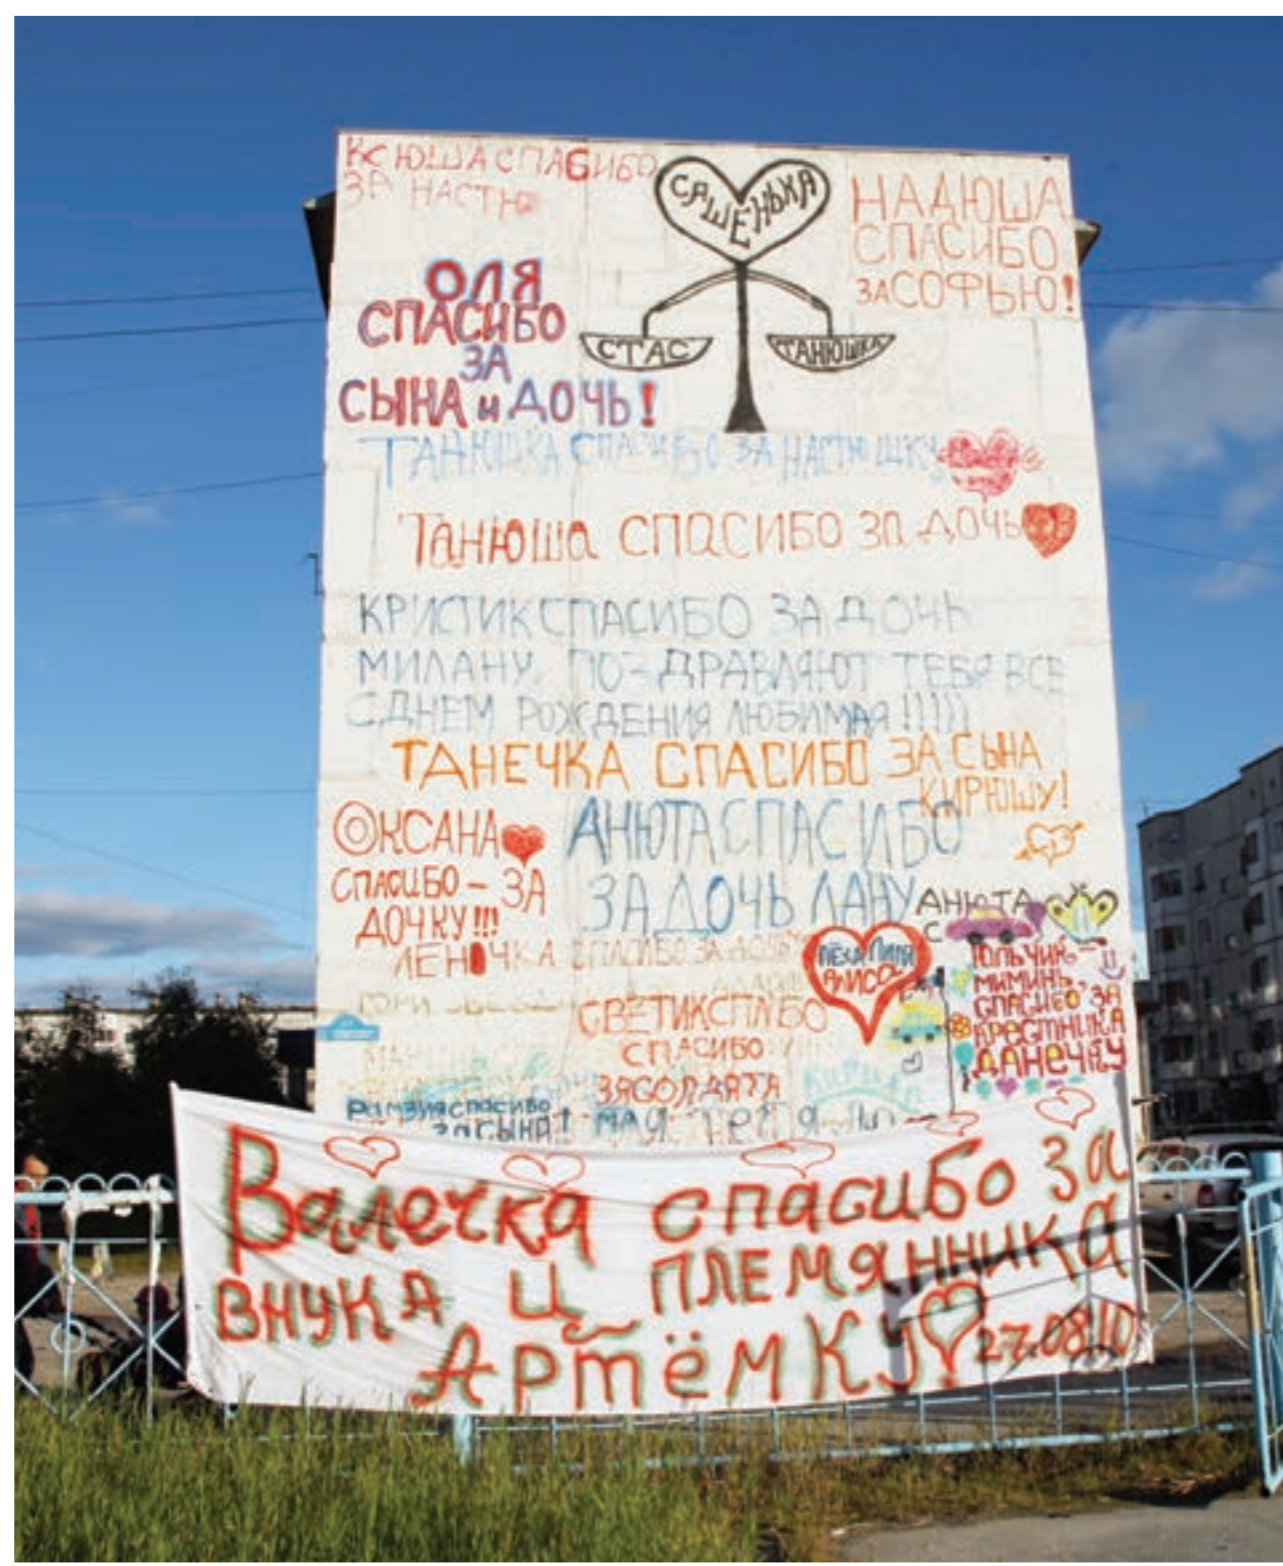 КСЮША СПАСИБО
ЗА НАСТЮ
САШЕНЬКА
СТАС
ТАНЮШКА
НАДЮША
СПАСИБО
ЗА СОФЬЮ!
ОЛЯ
СПАСИБО
ЗА
СЫНА и ДОЧЬ!
ТАНЮШКА СПАСИБО ЗА НАСТЮШКУ
ТАНЮША СПАСИБО ЗА ДОЧЬ
КРИСТИК СПАСИБО ЗА ДОЧЬ
МИЛАНУ. ПОЗДРАВЛЯЮТ ТЕБЯ ВСЕ
С ДНЕМ РОЖДЕНИЯ ЛЮБИМАЯ!!!!!
ТАНЕЧКА СПАСИБО ЗА СЫНА
КИРЮШУ!
ОКСАНА
СПАСИБО - ЗА
ДОЧКУ!!!
АНЮТА СПАСИБО
ЗА ДОЧЬ ЛАНУ
АНЮТА
С
ЛЕНОЧКА СПАСИБО ЗА ДОЧЬ
ЛЁХА
АЛИСА
ЮЛЬЧИК -
МИМИНЬ,
СПАСИБО ЗА
КРЕСТНИКА
ДАНЕЧКУ
СВЕТИК СПАСИБО
СПАСИБО
ЗА СОЛДАТА
РАМЗИЯ СПАСИБО
ЗА СЫНА!
МАЯ ТЕБЯ
Валечка спасибо за
ВНУКА И ПЛЕМЯННИКА
АРТЁМКУ 27.08.10